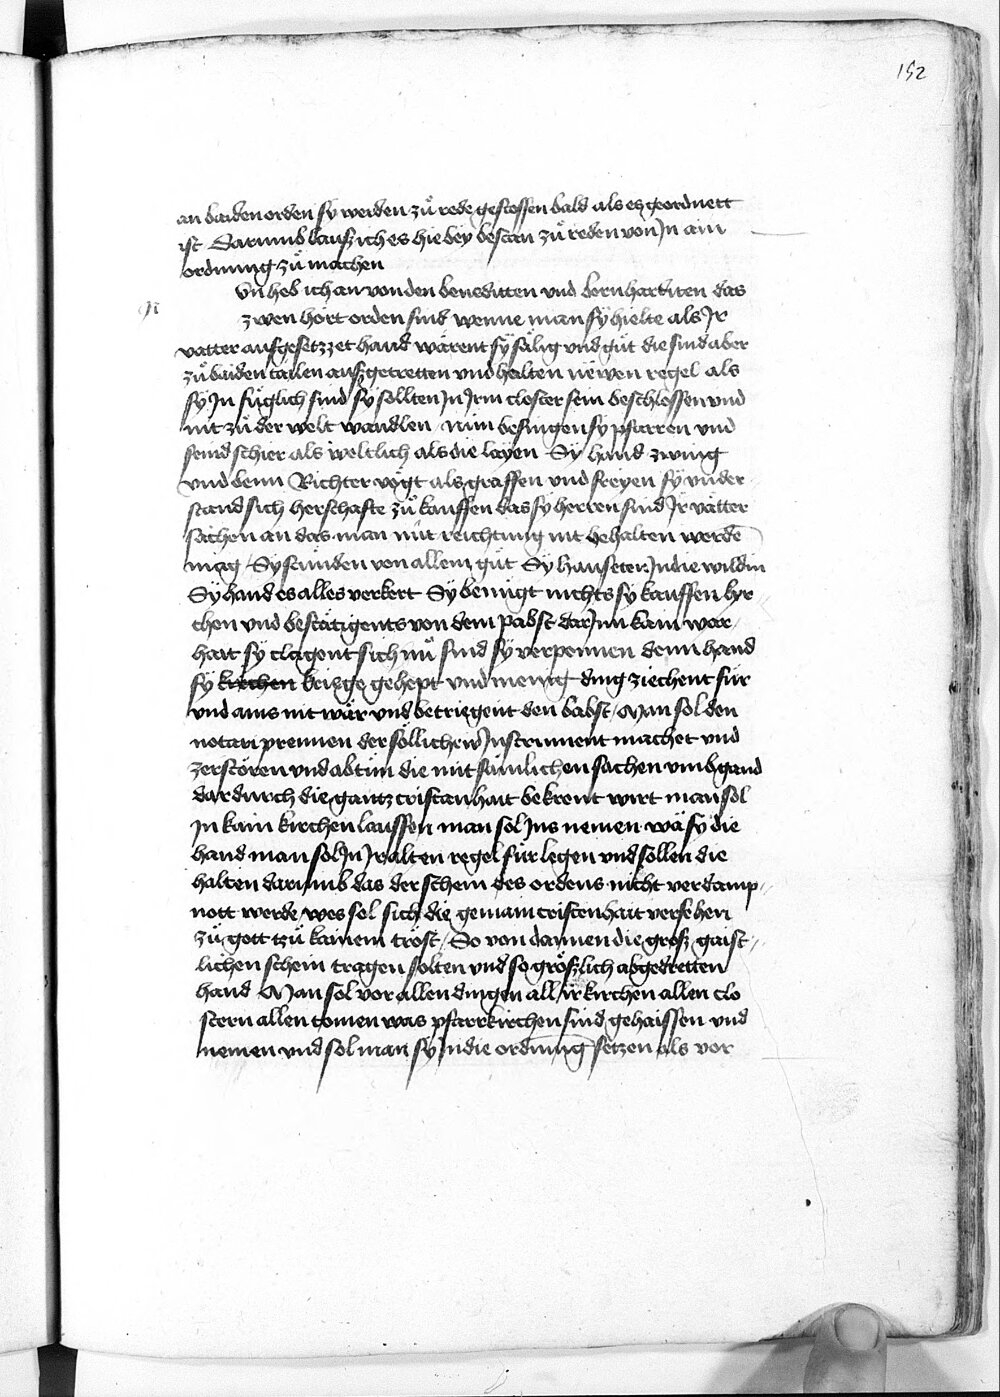 152
an baiden orden sy werden zů rede gestossen bald als es geordnett
ist Darumb lausz ich es hie bey bestan zů reden von Jn ain
ordnung zů machen
Vn heb ich an von den beneditten und bernharditen das
zwen hört orden sind wenne man sÿ hielte als Jr
vatter aufgesetzzet hand wärent sÿ sälig und gůt die sind aber
zů baiden tailen auszgetretten und halten newen regel als
sÿ Jn füglich sind sÿ sollten Jn Jrm closter sein beschlossen und
nit zů der welt wandlen nun besingen sy pfarren und
seind schier als weltlich als die layen Sy hand zwing
und benn Richter vögt als graffen und freyen sÿ under
stand sich herschafte zů kauffen das sÿ herren sind Jr vätter
sachen an das man mit reichtung nit behalten werde
mag Sy stunden von allem gůt Sy hauseten Jn die wildin
Sÿ hand es alles verkert Sÿ benügt nichts sy kauffen kyr
chen und bestätigents von dem pabst dar Jnn kain war
hait sy clagent sich nů sind sÿ verprunnen denn hand
sÿ kirchen kriege gehept und menig ding ziechent für
und ains nit wär und betriegent den babst Man sol den
notari prennen der söllichew Jnstrument machet und
zerstören und abtůn die mit sämlichen sachen umbgand
dardurch die gantz cristanhait bekrent wirt man sol
Jn kain kirchen laussen man sol Jns nemen wä sÿ die
hand man sol Jn Jr alten regel für legen und sollen die
halten darumb das der schein des ordens nicht verdamp
nott werde wes sol sich die gemain cristenhait versehen
zů gott tzů kainem tröst So von dannen die grosz gaist
lichen schein tragen solten und so gröszlich abgedretten
hand Man sol vor allen dingen all ir kirchen allen clo
stern allen tomen was pfarrkirchen sind gehaissen und
nemen und sol man sy Jn die ordnung setzen als vor